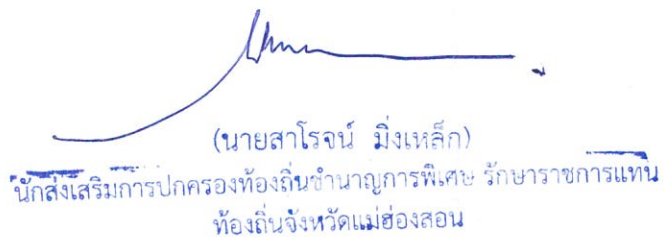 (นายสาโรจน์ มิ่งเหล็ก)
นักส่งเสริมการปกครองท้องถิ่นชำนาญการพิเศษ รักษาราชการแทน
ท้องถิ่นจังหวัดแม่ฮ่องสอน